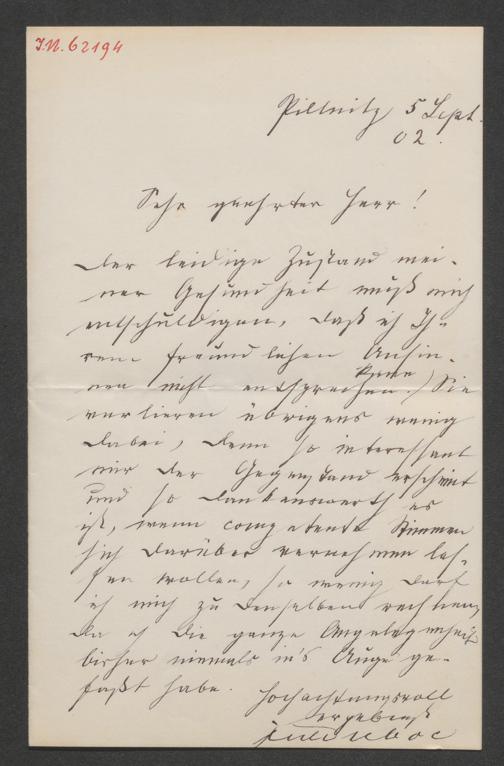 I.N. 62194
Pillnitz 5 Sept.
02.
Sehr geehrter Herr!
Der leidige Zustand mei-
ner Gesundheit muß mich
entschuldigen, daß ich Ih-
rem freundlichen Ansin-
nen nicht entsprechen kann. Sie
verlieren übrigens wenig
dabei, denn so interessant
mir der Gegenstand erscheint
und so dankenswerth es
ist, wenn competente Stimmen
sich darüber vernehmen las-
sen wollen, so wenig darf
ich mich zu denselben rechnen,
da ich die ganze Angelegenheit
bisher niemals in's Auge ge-
faßt habe.
Hochachtungsvoll
ergebenst